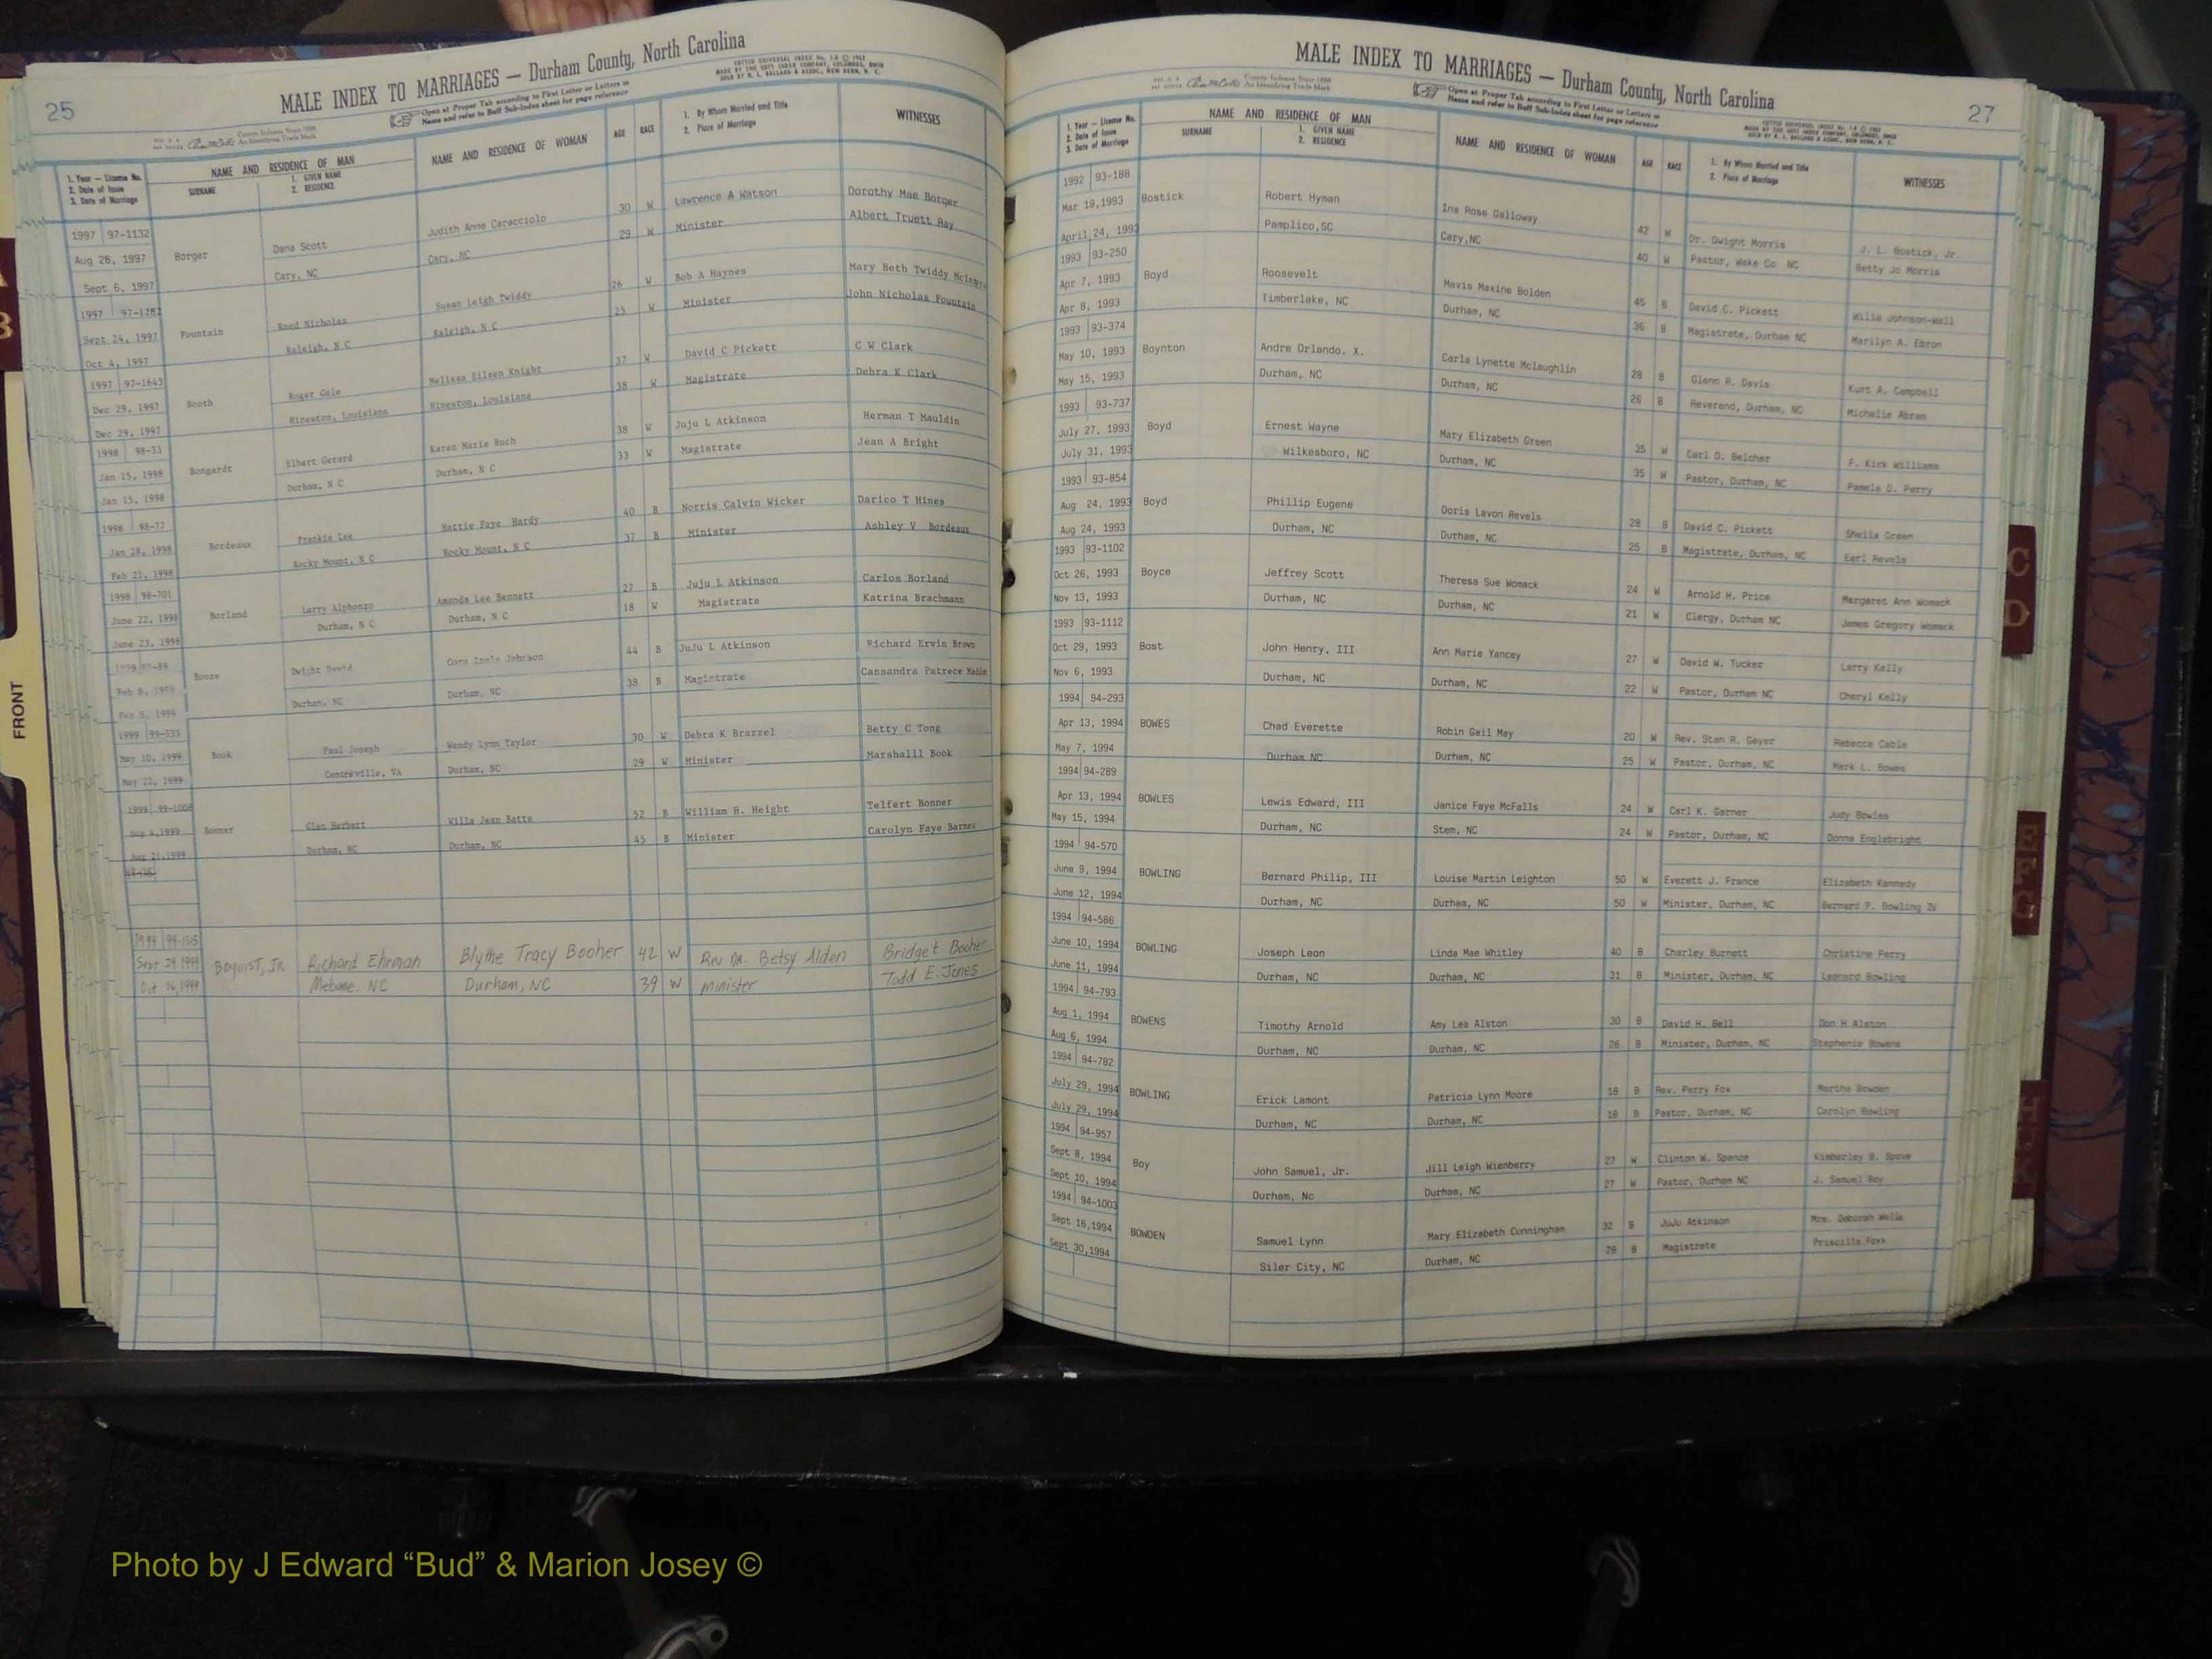 25
MALE INDEX TO MARRIAGES — Durham County, North Carolina
Open at Proper Tab according to First Letter or Letters of
Name and refer to Buff Sub-Index sheet for page reference
COTT'S UNIVERSAL INDEX
MADE BY THE COTT INDEX COMPANY, COLUMBUS, OHIO
SOLD BY G. L. BALLARD & ASSOC., NEW BERN, N. C.
County Indexes Since 1888
An Identifying Trade Mark
1. Year — License No.
2. Date of Issue
3. Date of Marriage
NAME AND RESIDENCE OF MAN
SURNAME
1. GIVEN NAME
2. RESIDENCE
NAME AND RESIDENCE OF WOMAN
AGE
RACE
1. By Whom Married and Title
2. Place of Marriage
WITNESSES
1997 97-1132 Judith Anne Caracciolo 30 W Lawrence A Watson Dorothy Mae Borger
Aug 26, 1997 Borger Dana Scott Cary, NC 29 W Minister Albert Truett Ray
Sept 6, 1997 Cary, NC
1997 97-1282 Susan Leigh Twiddy 26 W Bob A Haynes Mary Beth Twiddy McIntyre
Sept 24, 1997 Fountain Reed Nicholas Raleigh, N C 25 W Minister John Nicholas Fountain
Oct 4, 1997 Raleigh, N C
1997 97-1643 Melissa Eileen Knight 37 W David C Pickett C W Clark
Dec 29, 1997 Booth Roger Gale Hineston, Louisiana 38 W Magistrate Debra K Clark
Dec 29, 1997 Hineston, Louisiana
1998 98-53 Karen Marie Roch 38 W Juju L Atkinson Herman T Mauldin
Jan 15, 1998 Bongardt Elbert Gerard Durham, N C 33 W Magistrate Jean A Bright
Jan 15, 1998 Durham, N C
1998 98-77 Hattie Faye Hardy 40 B Norris Calvin Wicker Darico T Hines
Jan 28, 1998 Bordeaux Frankie Lee Rocky Mount, N C 37 B Minister Ashley V Bordeaux
Feb 21, 1998 Rocky Mount, N C
1998 98-701 Amanda Lee Bennett 27 B Juju L Atkinson Carlos Borland
June 22, 1998 Borland Larry Alphonzo Durham, N C 18 W Magistrate Katrina Brachmann
June 23, 1998 Durham, N C
Cora Inola Johnson 44 B JuJu L Atkinson Richard Ervin Brown
Feb 8, 1999 Booze Dwight David Durham, NC 38 B Magistrate Cassandra Patrece
Feb 8, 1999 Durham, NC
1999 99-533 Wendy Lynn Taylor 30 W Debra K Brazzel Betty C Tong
May 10, 1999 Book Paul Joseph Durham, NC 29 W Minister Marshalll Book
May 22, 1999 Centreville, VA
1999 99-1008 Willa Jean Batts 52 B William H. Height Telfert Bonner
Aug 4, 1999 Bonner Glen Herbert Durham, NC 45 B Minister Carolyn Faye Barnes
Aug 21, 1999 Durham, NC
1999 99-1315
Sept 29 1999 BOQUIST, JR. Richard Ehrman Blythe Tracy Booher 42 W Rev. Dr. Betsy Alden Bridget Booher
Oct 16, 1999 Mebane, NC Durham, NC 39 W Minister Todd E. Jones
MALE INDEX TO MARRIAGES — Durham County, North Carolina
27
Open at Proper Tab according to First Letter or Letters of
Name and refer to Buff Sub-Index sheet for page reference
County Indexes Since 1888
An Identifying Trade Mark
1. Year — License No.
2. Date of Issue
3. Date of Marriage
NAME AND RESIDENCE OF MAN
SURNAME
1. GIVEN NAME
2. RESIDENCE
NAME AND RESIDENCE OF WOMAN
AGE
RACE
1. By Whom Married and Title
2. Place of Marriage
WITNESSES
1992 93-188
Mar 19,1993 Bostick Robert Hyman Ina Rose Galloway 42 W Dr. Dwight Morris J. L. Bostick, Jr.
April 24, 1993 Pamplico,SC Cary,NC 40 W Pastor, Wake Co NC Betty Jo Morris
1993 93-250
Apr 7, 1993 Boyd Roosevelt Mavis Maxine Bolden 45 B David C. Pickett Willa Johnson-Wall
Apr 8, 1993 Timberlake, NC Durham, NC 36 B Magistrate, Durham NC Marilyn A. Ebron
1993 93-374
May 10, 1993 Boynton Andre Orlando, X. Carla Lynette Mclaughlin 28 B Glenn R. Davis Kurt A. Campbell
May 15, 1993 Durham, NC Durham, NC 26 B Reverend, Durham, NC Michelle Abram
1993 93-737
July 27, 1993 Boyd Ernest Wayne Mary Elizabeth Green 35 W Carl D. Belcher F. Kirk Williams
July 31, 1993 Wilkesboro, NC Durham, NC 35 W Pastor, Durham, NC Pamela D. Perry
1993 93-854
Aug 24, 1993 Boyd Phillip Eugene Doris Lavon Revels 28 B David C. Pickett Sheila Green
Aug 24, 1993 Durham, NC Durham, NC 25 B Magistrate, Durham, NC Earl Revels
1993 93-1102
Oct 26, 1993 Boyce Jeffrey Scott Theresa Sue Womack 24 W Arnold H. Price Margaret Ann Womack
Nov 13, 1993 Durham, NC Durham, NC 21 W Clergy, Durham NC James Gregory Womack
1993 93-1112
Oct 29, 1993 Bost John Henry, III Ann Marie Yancey 27 W David W. Tucker Larry Kelly
Nov 6, 1993 Durham, NC Durham, NC 22 W Pastor, Durham NC Cheryl Kelly
1994 94-293
Apr 13, 1994 BOWES Chad Everette Robin Gail May 20 W Rev. Stan R. Geyer Rebecca Cable
May 7, 1994 Durham NC Durham, NC 25 W Pastor, Durham, NC Mark L. Bowes
1994 94-289
Apr 13, 1994 BOWLES Lewis Edward, III Janice Faye McFalls 24 W Carl K. Garner Judy Bowles
May 15, 1994 Durham, NC Stem, NC 24 W Pastor, Durham, NC Donna Englebright
1994 94-570
June 9, 1994 BOWLING Bernard Philip, III Louise Martin Leighton 50 W Everett J. France Elizabeth Kennedy
June 12, 1994 Durham, NC Durham, NC 50 W Minister, Durham, NC Bernard P. Bowling IV
1994 94-586
June 10, 1994 BOWLING Joseph Leon Linda Mae Whitley 40 B Charley Burnett Christine Perry
June 11, 1994 Durham, NC Durham, NC 31 B Minister, Durham, NC Leonard Bowling
1994 94-793
Aug 1, 1994 BOWENS Timothy Arnold Amy Lea Alston 30 B David H. Bell Don H Alston
Aug 6, 1994 Durham, NC Durham, NC 26 B Minister, Durham, NC Stephenie Bowens
1994 94-782
July 29, 1994 BOWLING Erick Lamont Patricia Lynn Moore 18 B Rev. Perry Fox Martha Bowden
July 29, 1994 Durham, NC Durham, NC 18 B Pastor, Durham, NC Carolyn Bowling
1994 94-957
Sept 8, 1994 Boy John Samuel, Jr. Jill Leigh Wienberry 27 W Clinton W. Spence Kimberley B. Spove
Sept 10, 1994 Durham, Nc Durham, NC 27 W Pastor, Durham NC J. Samuel Boy
1994 94-1003
Sept 16,1994 BOWDEN Samuel Lynn Mary Elizabeth Cunningham 32 B JuJu Atkinson Mrs. Deborah Wells
Sept 30,1994 Siler City, NC Durham, NC 28 B Magistrate Priscilla Foxx
FRONT
B
C
D
E
F
G
H
Photo by J Edward “Bud” & Marion Josey ©